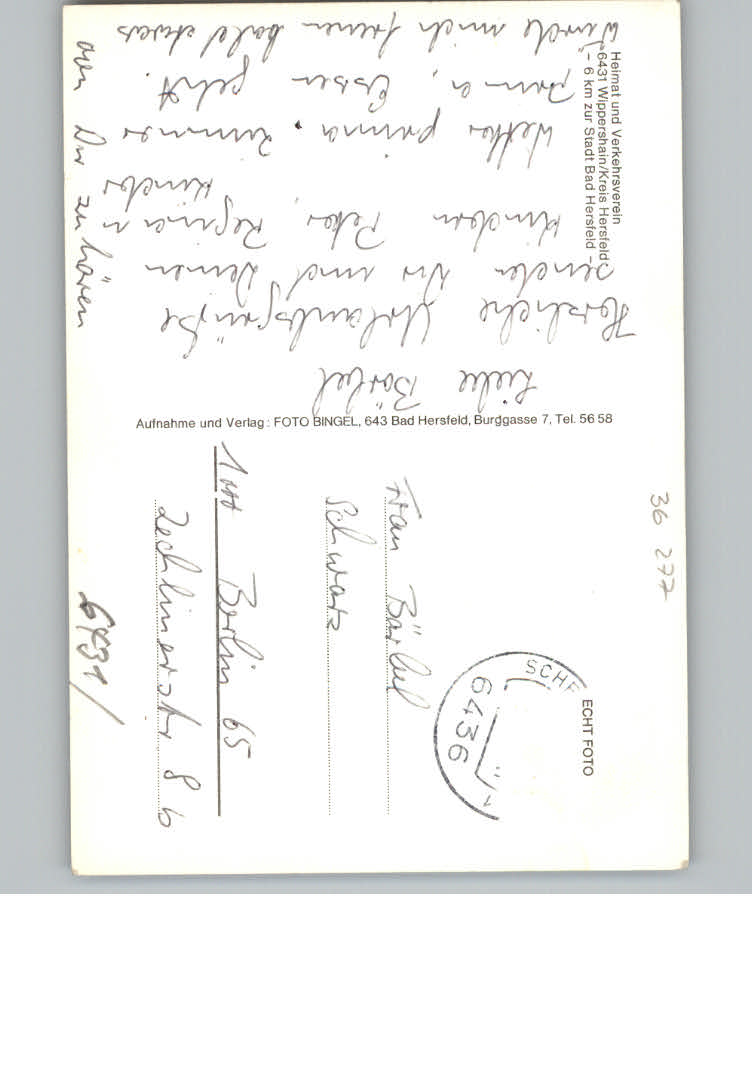 Heimat und Verkehrsverein
6431 Wippershain/Kreis Hersfeld
– 6 km zur Stadt Bad Hersfeld –
Liebe Bärbel
Herzliche Urlaubsgrüße
senden Dir und Deinen
Kindern Peter, Regina u
Kinder
Wetter prima. Zimmer
prima, Essen geht.
Würde mich freuen bald etwas
von Dir zu hören
Aufnahme und Verlag: FOTO BINGEL, 643 Bad Hersfeld, Burggasse 7, Tel. 56 58
ECHT FOTO
6436
36 277
Frau Bärbel
Schwarz
1000 Berlin 65
Zechlinerstr 8 b
6431/